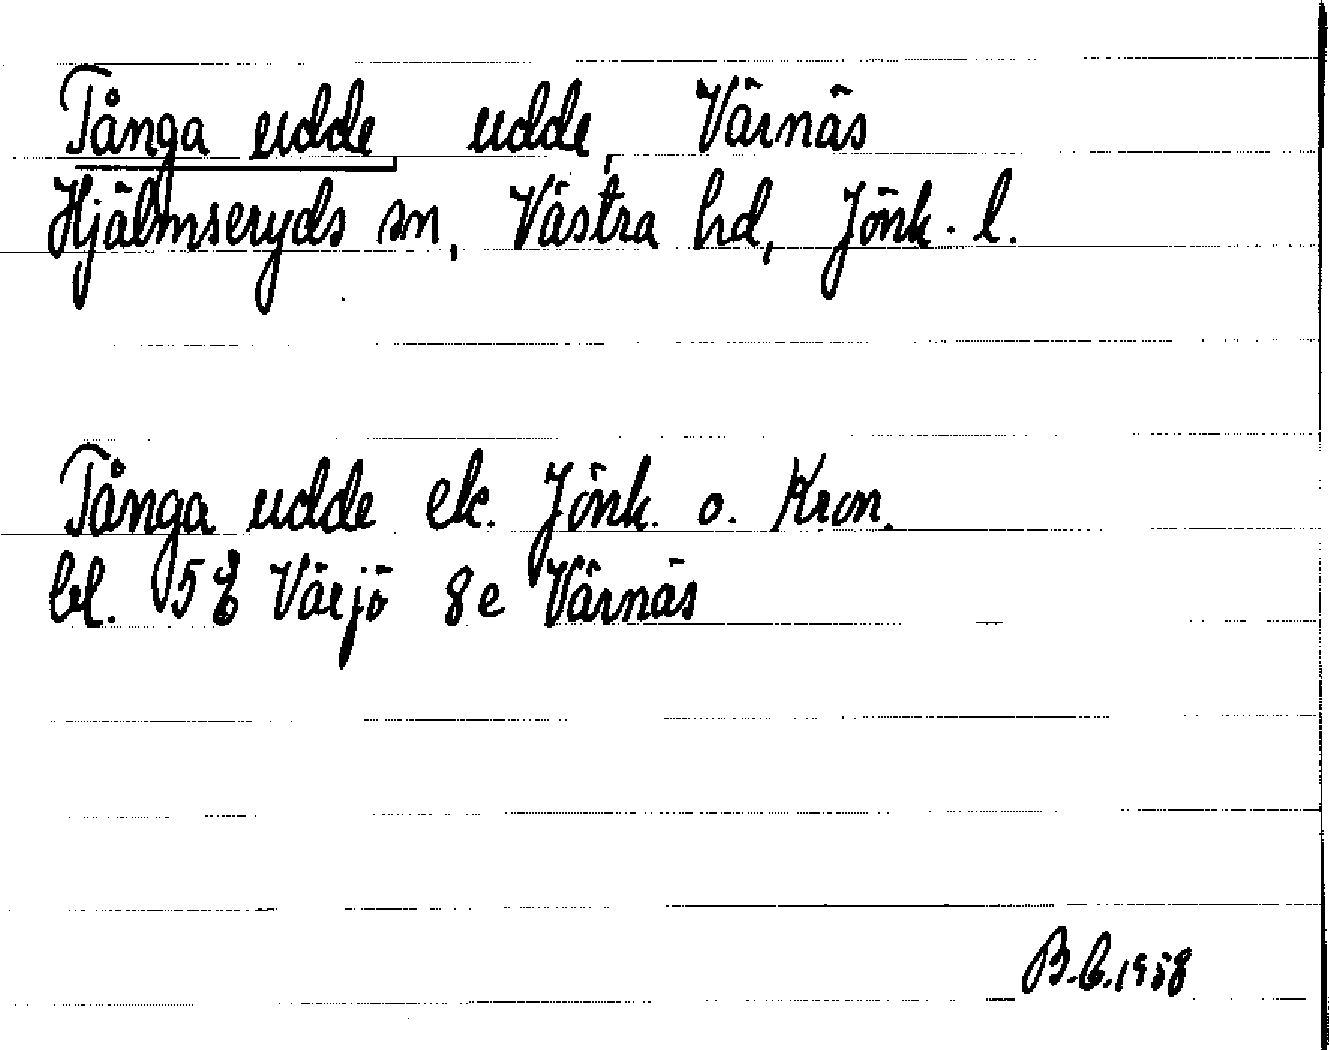 Tånga udde udde, Värnäs
Hjälmseryds sn, Västra hd, Jönk. l.
Tånga udde ek. Jönk. o. Kron.
bl. 5E Växjö 8e Värnäs
B.C. 1958